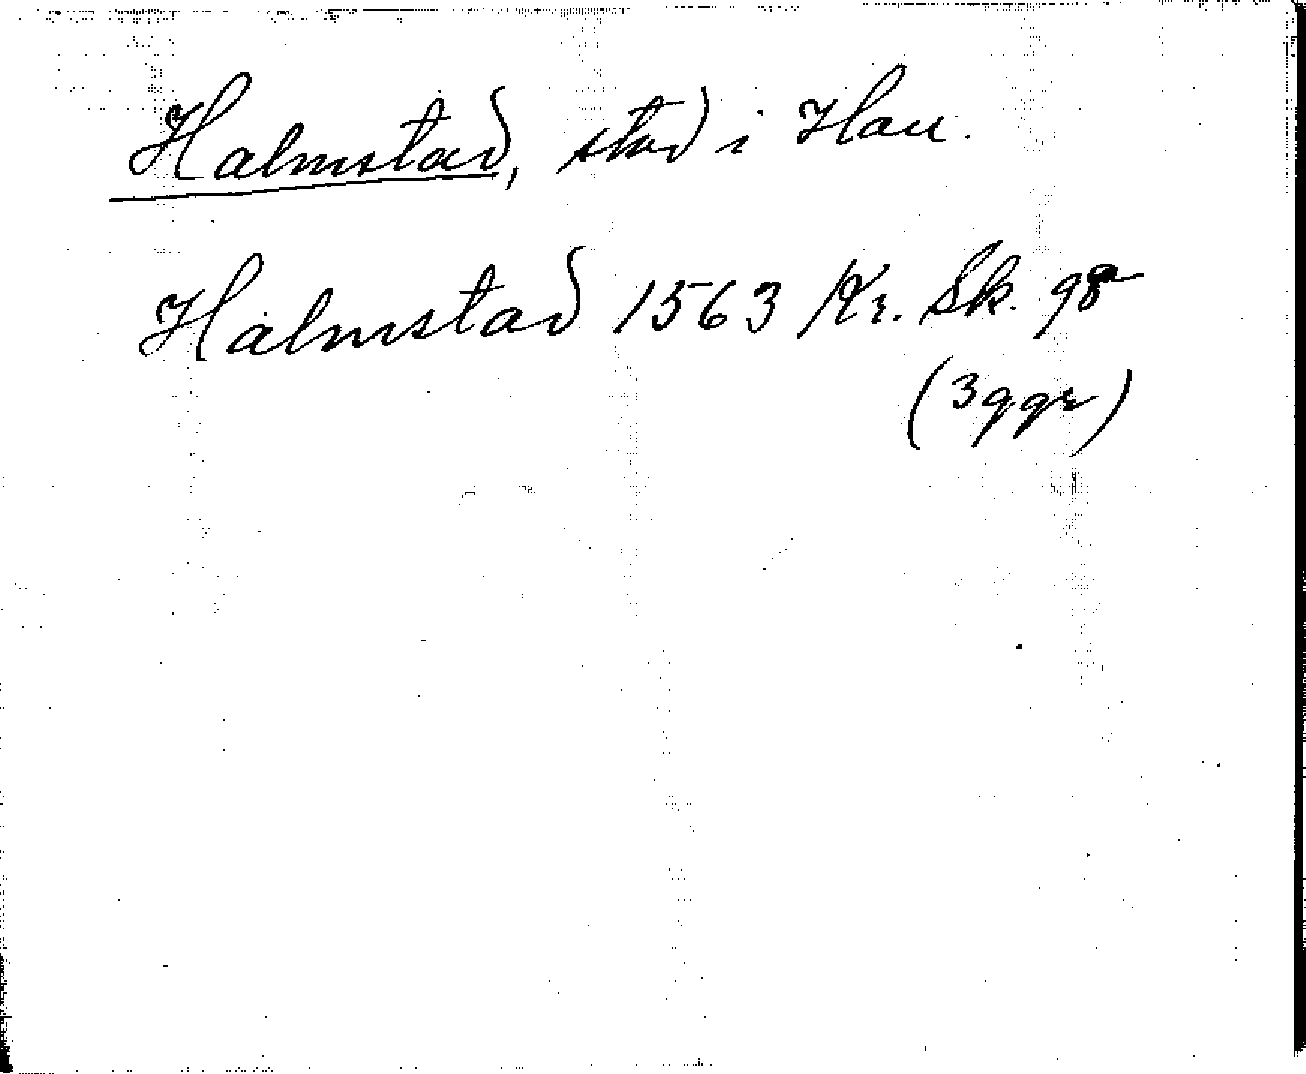 Halmstad, stad i Hall.
Halmstad 1563 Kr. Sk. 98
(3 ggr)